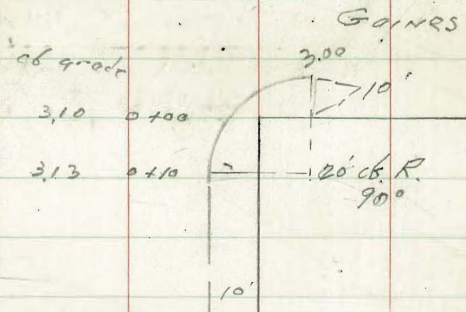 GAINES
cb grade
3.00
10'
3,10 0+00
3,13 0+10 20' cb. R.
90°
10'